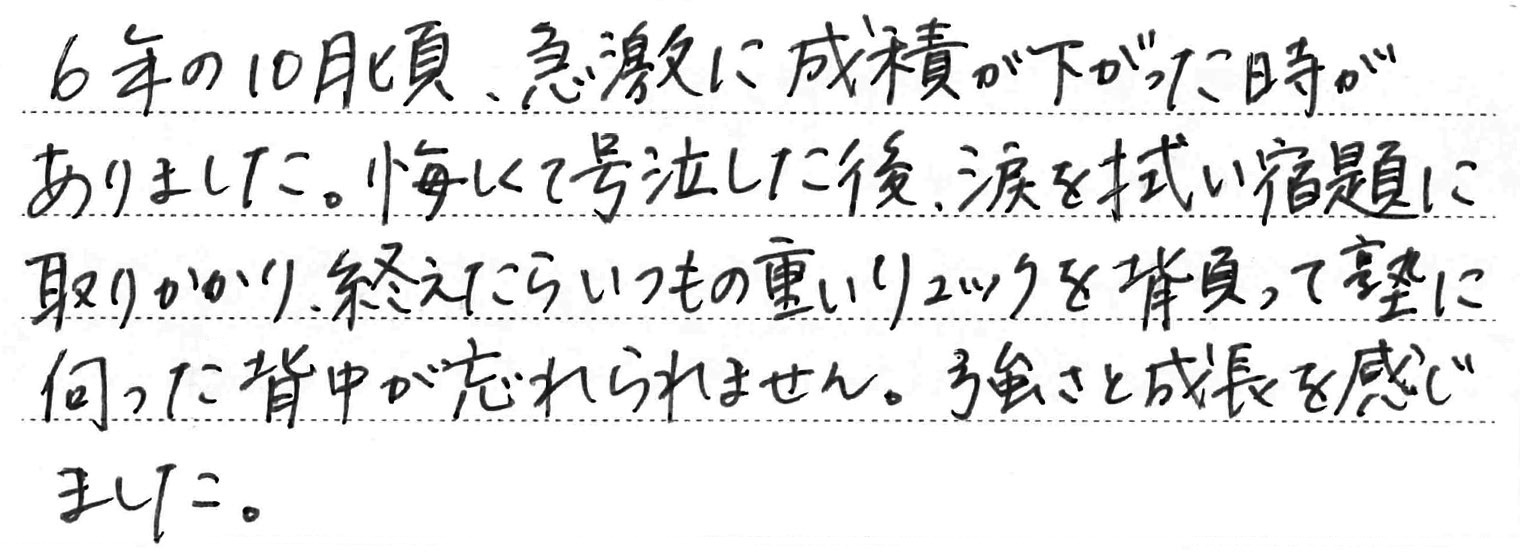 6年の10月頃、急激に成績が下がった時が
ありました。悔しくて号泣した後、涙を拭い宿題に
取りかかり、終えたらいつもの重いリュックを背負って塾に
向った背中が忘れられません。強さと成長を感じ
ました。